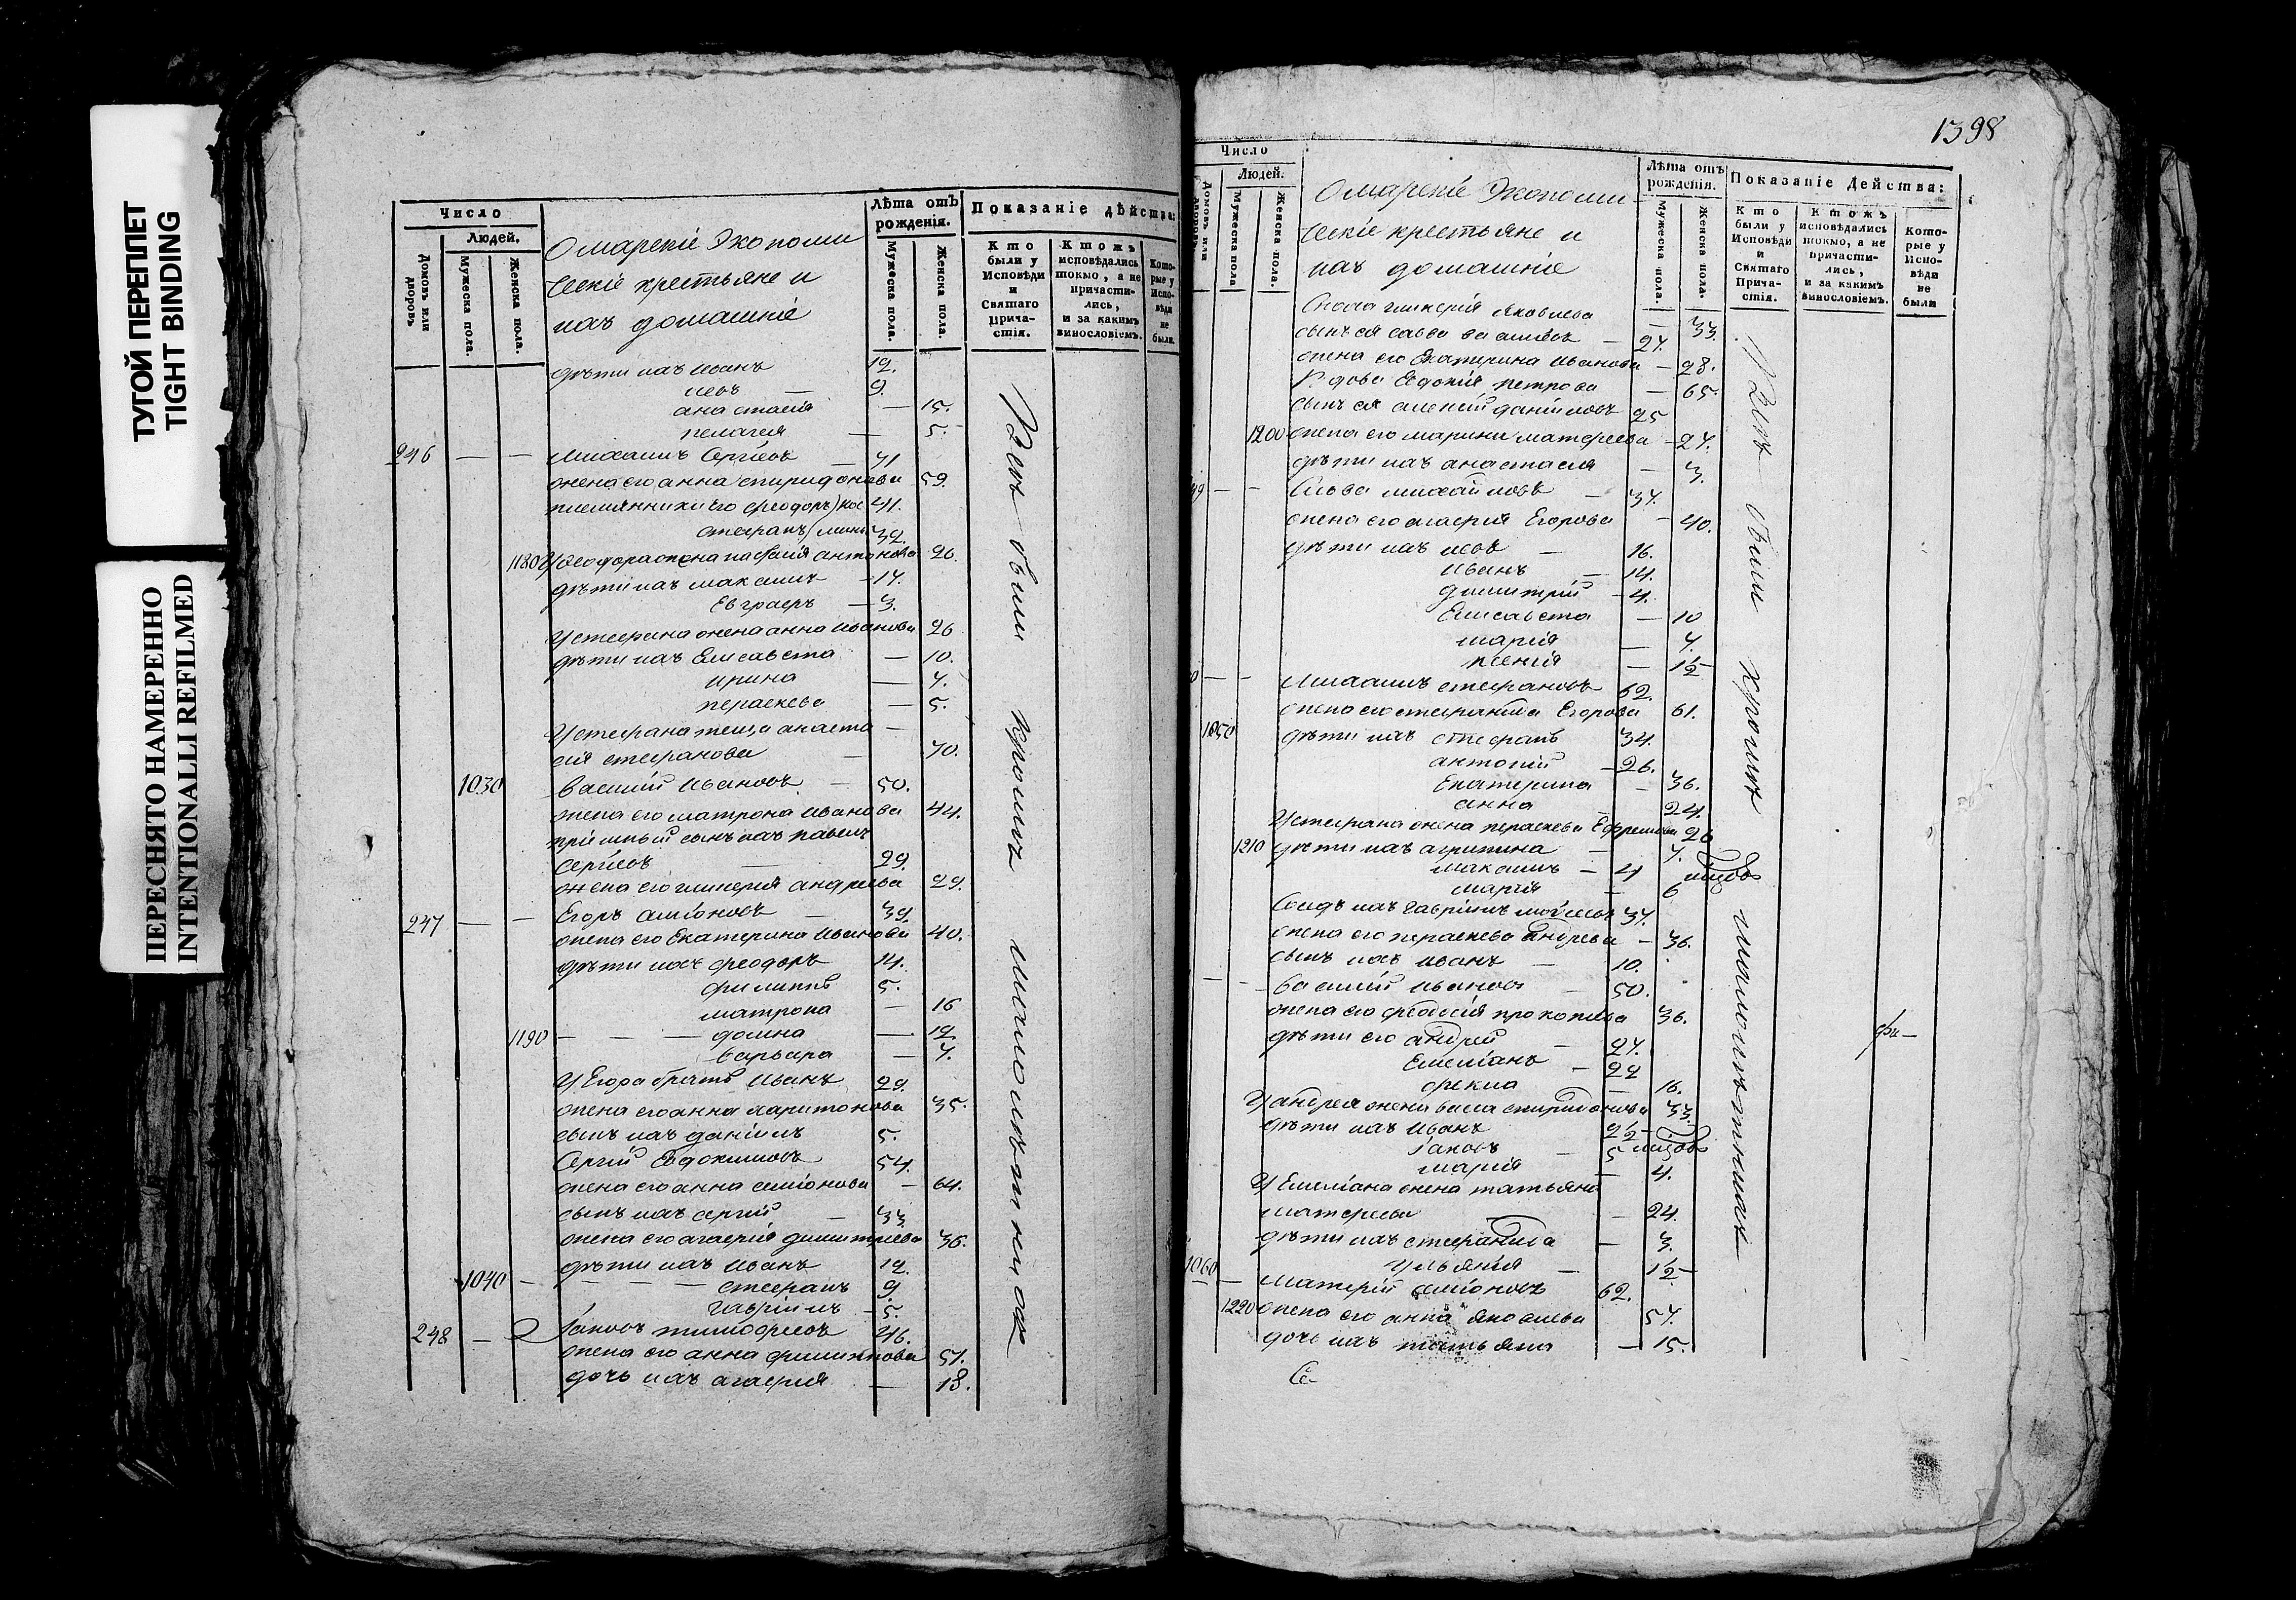 ТУГОЙ ПЕРЕПЛЕТ
TIGHT BINDING
ПЕРЕСНЯТО НАМЕРЕННО
INTENTIONALLI REFILMED
Число
Людей.
Домовъ или дворовъ.
Мужеска пола.
Женска пола.
Омарскіе Экономи
ческіе крестьяне и
ихъ домашніе
Лѣта отъ рожденія.
Мужеска пола.
Женска пола.
Показаніе дѣйства:
Кто были у Исповѣди и Святаго Причастія.
Ктожъ исповѣдались токмо, а не причастились, и за какимъ винословіемъ.
Которые у Исповѣди не были.
дѣти ихъ Иванъ 12.
левъ — 9.
анастасія — 15.
пелагея — 5.
246 — — михаилъ Сергѣевъ — 71
жена его анна спиридонова 59.
племянники его феодоръ 41.
стефанъ 32.
1180 У феодора жена антонова 26.
дѣти ихъ максимъ — 17.
Евграфъ — 3.
У стефана жена анна Иванова 26
дѣти ихъ Елисавета — 10.
ирина — 7.
параскева — 5.
У стефана теща анаста —
сія стефанова — 70.
1030 василій Ивановъ — 50.
жена его матрона Иванова 44.
пріимный сынъ ихъ павелъ
Сергѣевъ — 29.
жена его гликерія андреева 29.
247 — — Егоръ симіоновъ — 39.
жена его Екатерина Иванова 40.
дѣти ихъ феодоръ 14.
филиппъ 5.
матрона — 16
1190 — — — домна — 12
варвара — 7.
У Егора братъ Иванъ 29.
жена его анна харитонова 35.
сынъ ихъ даніилъ 5.
Сергій Евдокимовъ 54.
жена его анна симіонова — 64.
сынъ ихъ сергій — 33.
жена его агафія димитріева 36.
дѣти ихъ Иванъ 12.
1040 — — — — стефанъ 9.
гавріилъ — 5.
248 — Іаковъ тимофеевъ 46.
жена его анна филиппова 51.
дочь ихъ агафія — 18.
Всѣ были кромѣ малолѣтнихъ
1398
Число
Людей.
Домовъ или дворовъ.
Мужеска пола.
Женска пола.
Омарскіе Экономи
ческіе крестьяне и
ихъ домашніе
Лѣта отъ рожденія.
Мужеска пола.
Женска пола.
Показаніе Действа:
Кто были у Исповѣди и Святаго Причастія.
Ктожъ исповѣдались токмо, а не причастились, и за какимъ винословіемъ.
Которые у Исповѣди не были
Сноха гликерія яковлева — 33.
сынъ ея савва — 27.
жена его Екатерина Иванова — 28.
Вдова Евдокія петрова — 65.
сынъ ея алексій даніиловъ 25
1200 жена его марина матфеева — 27.
дѣти ихъ анастасія — 3.
49 — — Савва михайловъ — 37.
жена его агафія Егорова — 40.
дѣти ихъ левъ — 16.
Иванъ — 14.
димитрій — 4.
Елисавета — 10
марія — 7.
ксенія — 1½
михаилъ стефановъ 62.
жена его стефанида Егорова 61.
1050 дѣти ихъ стефанъ 34.
антоній — 26.
Екатерина — 36.
анна 24.
У стефана жена параскева Ефремова 26
1210 дѣти ихъ агрипина — 7.
максимъ — 4
марія — 6
Сосѣдъ ихъ гавріилъ моисеевъ 37.
жена его параскева андреева — 36.
сынъ ихъ Иванъ — 10.
— — василій Ивановъ — 50.
жена его феодосія прокопіева 36.
дѣти его андрей — 27.
Емеліанъ — 22
фекла — 16.
У андрея жена васса спиридонова 33.
дѣти ихъ Иванъ 2½
Іаковъ — 5
марія — 4.
У Емеліана жена татьяна
матфеева — 24.
дѣти ихъ стефанида — 3.
1060 Ульянія — 1½
матфей симіоновъ 62.
1220 жена его анна яковлева 57.
дочь ихъ татьяна — 15.
Всѣ были кромѣ малолѣтнихъ